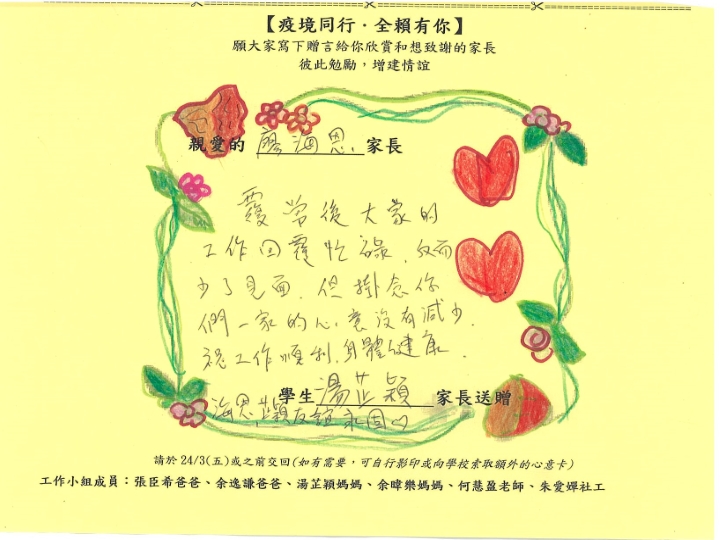 【疫境同行·全賴有你】
願大家寫下贈言給你欣賞和想致謝的家長
彼此勉勵，增建情誼
親愛的 廖海恩 家長
覆學後大家的
工作回覆忙碌，反而
少了見面，但掛念你
們一家的心意沒有減少，
祝工作順利，身體健康。
學生 湯芷穎 家長送贈
海恩，芷穎友誼永固♡
請於 24/3(五)或之前交回(如有需要，可自行影印或向學校索取額外的心意卡)
工作小組成員：張臣希爸爸、余逸謙爸爸、湯芷穎媽媽、余暐樂媽媽、何慧盈老師、朱愛嬋社工